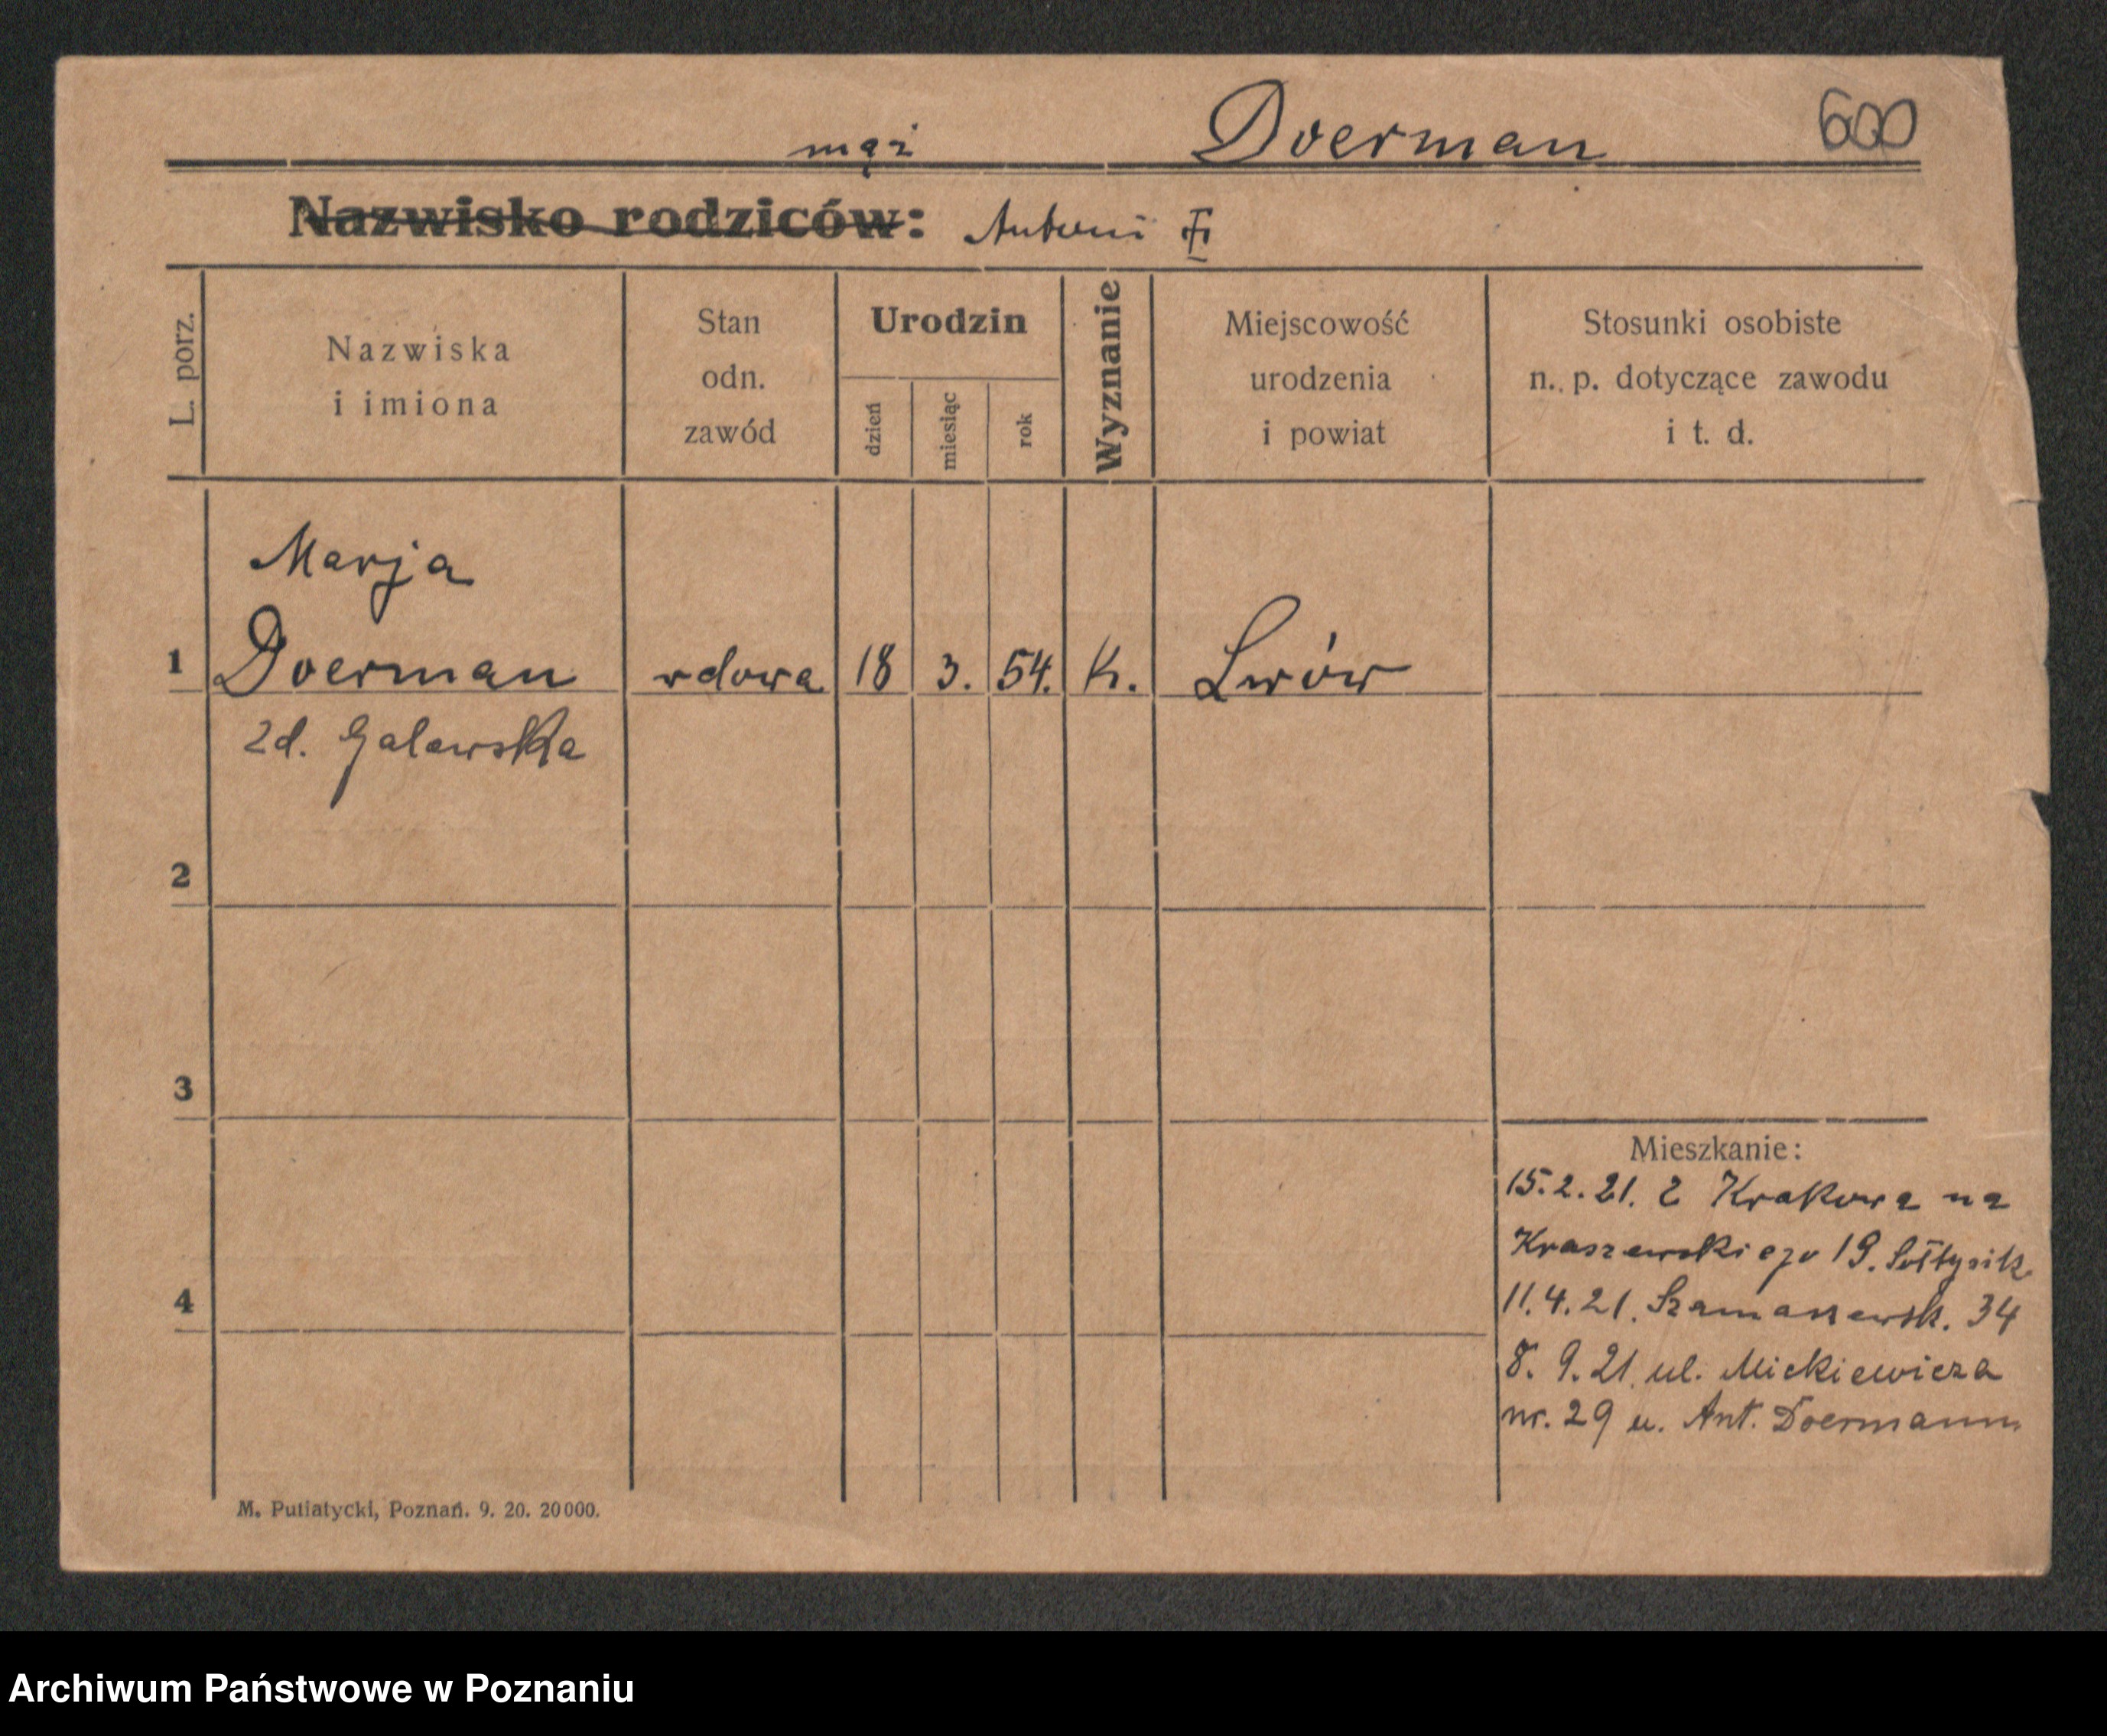 Doerman 600
mąż
Nazwisko rodziców: Antoni
L. porz.
Nazwiska
i imiona
Stan
odn.
zawód
Urodzin
dzień
miesiąc
rok
Wyznanie
Miejscowość
urodzenia
i powiat
Stosunki osobiste
n. p. dotyczące zawodu
i t. d.
Marja
1 Doerman wdowa 18 3. 54. K. Lwów
zd. Galewska
2
3
4
Mieszkanie:
15.2.21. z Krakowa na
Kraszewskiego 19. Sołtysik
11.4.21. Szamarzewsk. 34
8. 9. 21. ul. Mickiewicza
nr. 29 u. Ant. Doermann
M. Putiatycki, Poznań. 9. 20. 20000.
Archiwum Państwowe w Poznaniu